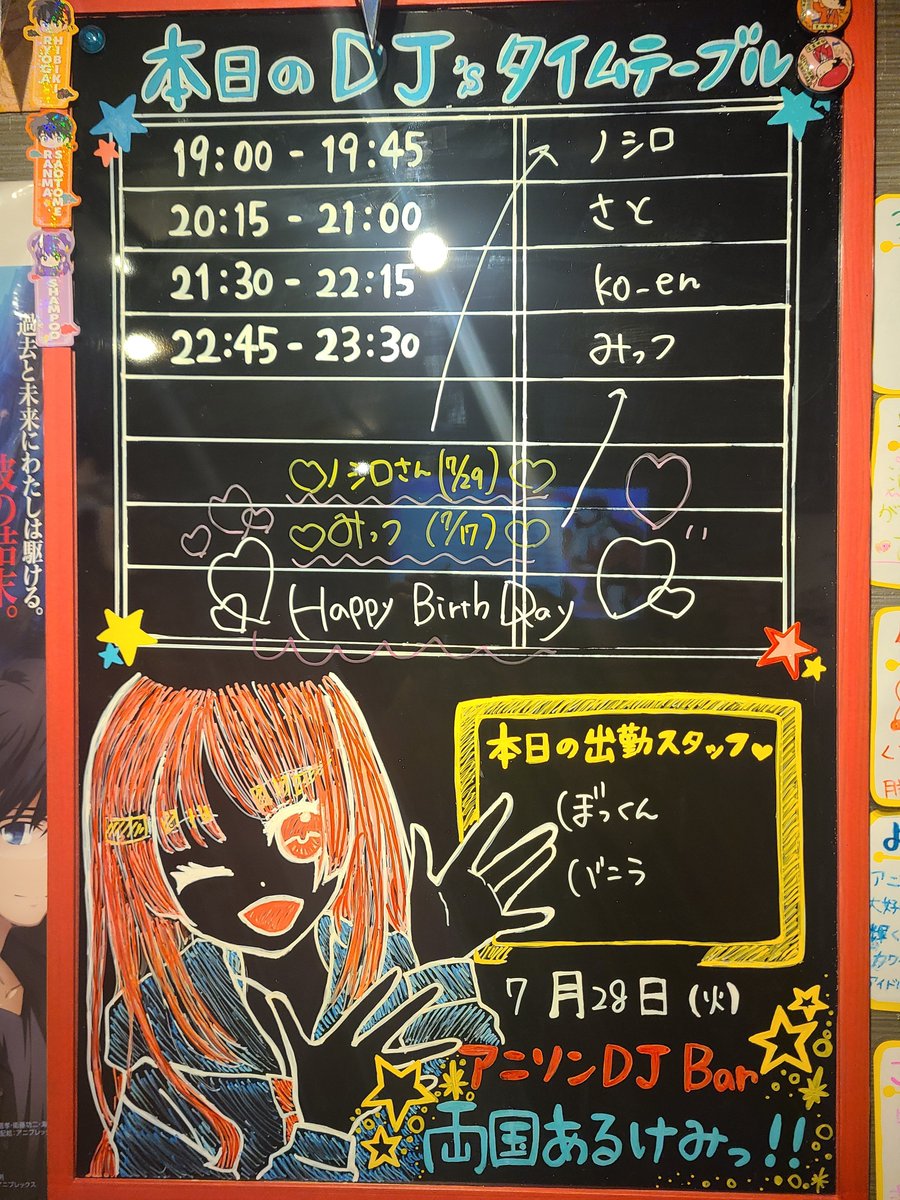 本日のDJ'sタイムテーブル
19:00 - 19:45 ノシロ
20:15 - 21:00 さと
21:30 - 22:15 ko-en
22:45 - 23:30 みっつ
♡ノシロさん(7/29)♡
♡みっつ (7/17)♡
Happy Birth Day
本日の出勤スタッフ♥
ぼっくん
バニラ
7月28日(火)
アニソンDJ Bar
両国あるけみっ!!
HIBIKI
RYOGA
SAOTOME
RANMA
SHAMPOO
過去と未来にわたしは駆ける。
彼の結末。
アニ
大好
カワ
アイドル